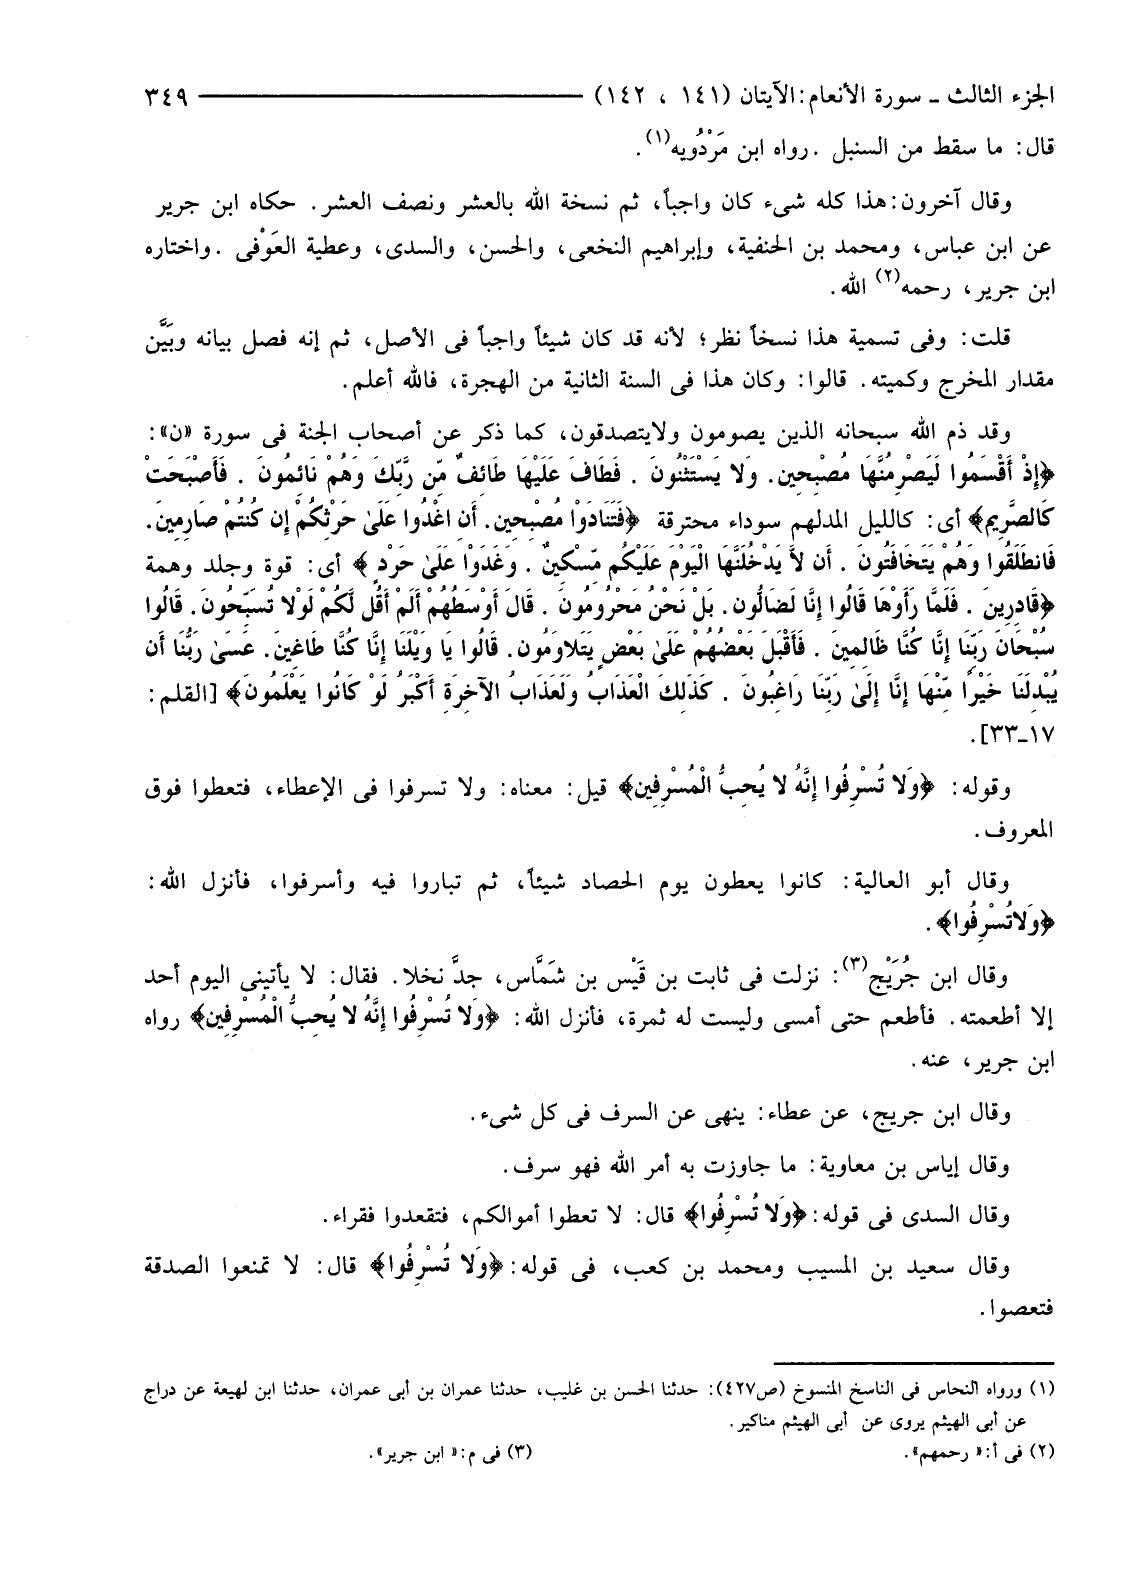 الجزء الثالث ـ سورة الأنعام: الآيتان (١٤١ ، ١٤٢) ٣٤٩
قال: ما سقط من السنبل . رواه ابن مَرْدُويه(١).
وقال آخرون: هذا كله شىء كان واجباً، ثم نسخة الله بالعشر ونصف العشر. حكاه ابن جرير
عن ابن عباس، ومحمد بن الحنفية، وإبراهيم النخعى، والحسن، والسدى، وعطية العَوْفى . واختاره
ابن جرير، رحمه(٢) الله.
قلت: وفى تسمية هذا نسخاً نظر؛ لأنه قد كان شيئاً واجباً فى الأصل، ثم إنه فصل بيانه وبَيَّن
مقدار المخرج وكميته. قالوا: وكان هذا فى السنة الثانية من الهجرة، فالله أعلم.
وقد ذم الله سبحانه الذين يصومون ولايتصدقون، كما ذكر عن أصحاب الجنة فى سورة «ن»:
﴿إِذْ أَقْسَمُوا لَيَصْرِمُنَّهَا مُصْبِحِين. وَلا يَسْتَثْنُونَ . فَطَافَ عَلَيْهَا طَائِفٌ مّن رَّبِّكَ وَهُمْ نَائِمُونَ . فَأَصْبَحَتْ
كَالصَّرِيمِ﴾ أى: كالليل المدلهم سوداء محترقة ﴿فَتَنَادَوْا مُصْبِحِين. أَنِ اغْدُوا عَلَىٰ حَرْثِكُمْ إِن كُنتُمْ صَارِمِينَ.
فَانطَلَقُوا وَهُمْ يَتَخَافَتُونَ . أَن لاَّ يَدْخُلَنَّهَا الْيَوْمَ عَلَيْكُم مِّسْكِينٌ . وَغَدَوْا عَلَىٰ حَرْدٍ ﴾ أى: قوة وجلد وهمة
﴿قَادِرِينَ . فَلَمَّا رَأَوْهَا قَالُوا إِنَّا لَضَالُّون. بَلْ نَحْنُ مَحْرُومُونَ . قَالَ أَوْسَطُهُمْ أَلَمْ أَقُل لَّكُمْ لَوْلا تُسَبِّحُونَ. قَالُوا
سُبْحَانَ رَبِّنَا إِنَّا كُنَّا ظَالِمِينَ . فَأَقْبَلَ بَعْضُهُمْ عَلَىٰ بَعْضٍ يَتَلاوَمُون. قَالُوا يَا وَيْلَنَا إِنَّا كُنَّا طَاغِينَ. عَسَىٰ رَبُّنَا أَن
يُبْدِلَنَا خَيْرًا مِّنْهَا إِنَّا إِلَىٰ رَبِّنَا رَاغِبُونَ . كَذَلِكَ الْعَذَابُ وَلَعَذَابُ الآخِرَةِ أَكْبَرُ لَوْ كَانُوا يَعْلَمُونَ﴾ [القلم:
١٧ـ٣٣].
وقوله: ﴿وَلا تُسْرِفُوا إِنَّهُ لا يُحِبُّ الْمُسْرِفِين﴾ قيل: معناه: ولا تسرفوا فى الإعطاء، فتعطوا فوق
المعروف.
وقال أبو العالية: كانوا يعطون يوم الحصاد شيئاً، ثم تباروا فيه وأسرفوا، فأنزل الله:
﴿وَلاتُسْرِفُوا﴾.
وقال ابن جُرَيْج(٣): نزلت فى ثابت بن قَيْس بن شَمَّاس، جدَّ نخلا. فقال: لا يأتينى اليوم أحد
إلا أطعمته. فأطعم حتى أمسى وليست له ثمرة، فأنزل الله: ﴿وَلا تُسْرِفُوا إِنَّهُ لا يُحِبُّ الْمُسْرِفِين﴾ رواه
ابن جرير، عنه.
وقال ابن جريج، عن عطاء: ينهى عن السرف فى كل شىء.
وقال إياس بن معاوية: ما جاوزت به أمر الله فهو سرف.
وقال السدى فى قوله: ﴿وَلا تُسْرِفُوا﴾ قال: لا تعطوا أموالكم، فتقعدوا فقراء.
وقال سعيد بن المسيب ومحمد بن كعب، فى قوله: ﴿وَلا تُسْرِفُوا﴾ قال: لا تمنعوا الصدقة
فتعصوا.
(١) ورواه النحاس فى الناسخ المنسوخ (ص٤٢٧): حدثنا الحسن بن غليب، حدثنا عمران بن أبى عمران، حدثنا ابن لهيعة عن دراج
عن أبى الهيثم يروى عن أبى الهيثم مناكير.
(٢) فى أ: « رحمهم». (٣) فى م: « ابن جرير».